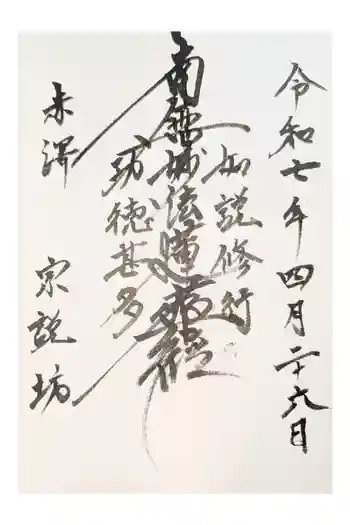 令和七年四月二十六日
如説修行
南無妙法蓮華経
功徳甚多
赤澤 宗説坊